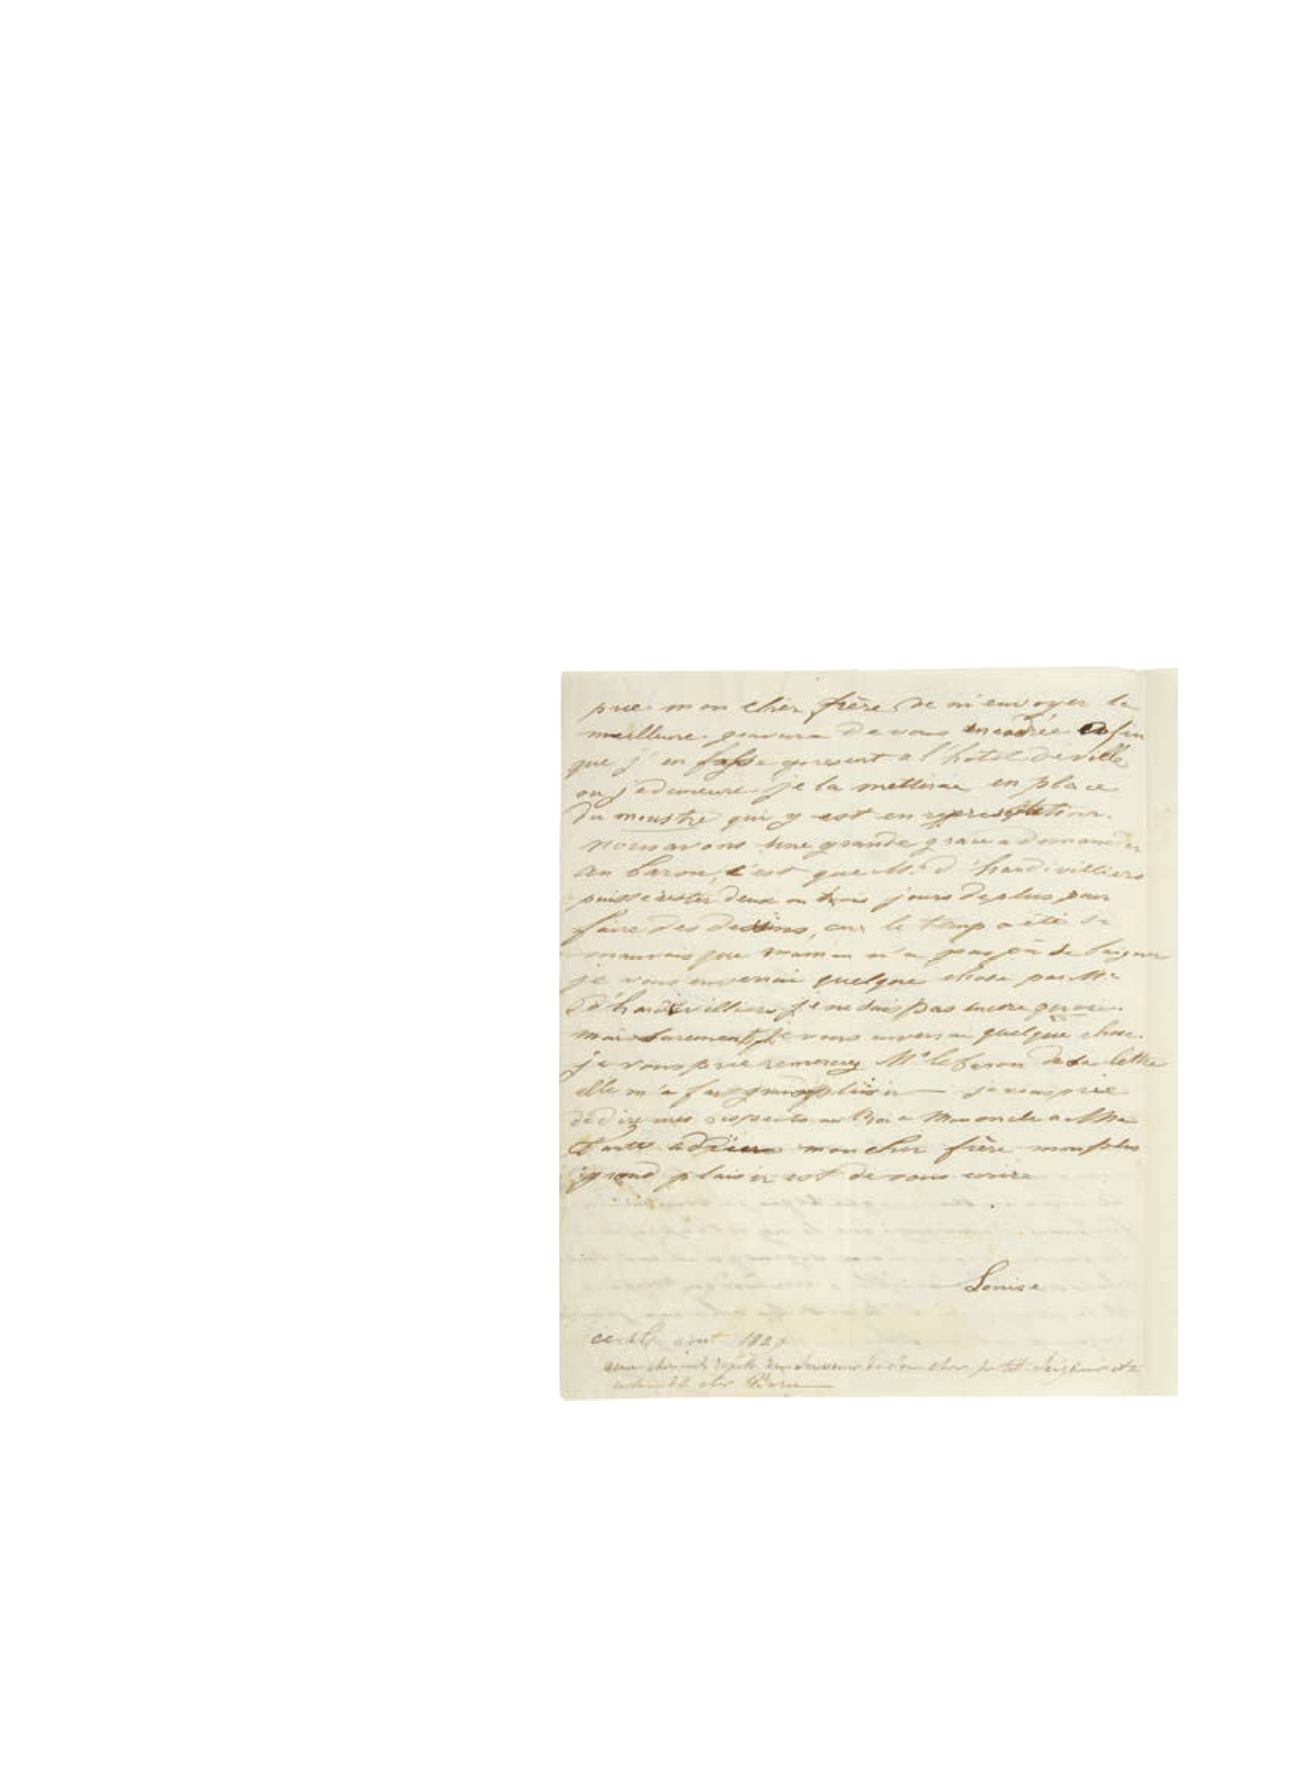 prie mon cher frère de m'envoyer la
meilleure gravure de vous encadrée afin
que j'en fasse present a l'hotel de ville
ou je demeure je la metterai en place
du monstre qui y est en
nous avons une grande grace a demander
au baron, c'est que Mr d'hardivilliers
puisse rester deux ou trois jours de plus pour
faire des dessins, car le temp a été si
mauvais que maman n'a pas pû se baigner
je vous enverrai quelque chose par Mr
d'hardivilliers je ne sais pas encore quoi.
mais surement je vous enverrai quelque chose.
je vous prie remercier Mr le baron de sa lettre
elle m'a fait grand plaisir je vous prie
de dire mes respects au Roi a Mon oncle a Ma
Tante adieu mon cher frère mon plus
grand plaisir est de vous ecrire
Louise
ce août
cher petit